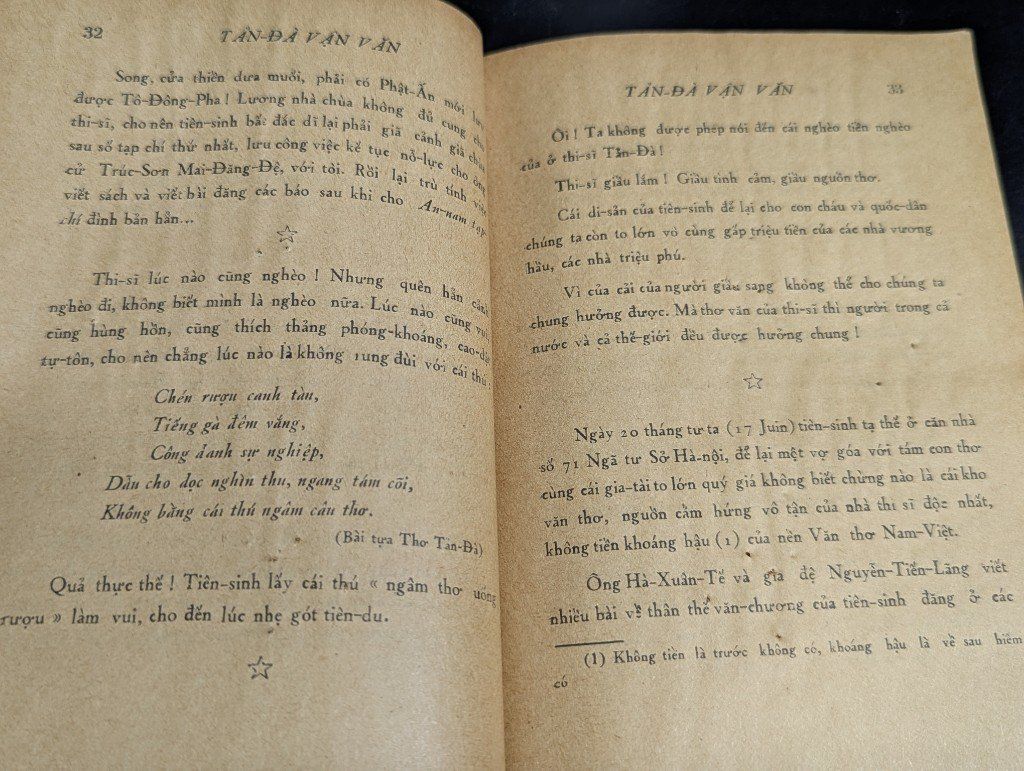 32
TẢN-ĐÀ VẬN VĂN
Song, cửa thiền dưa muối, phải có Phật-Ấn mới lưu
được Tô-Đông-Pha! Lương nhà chùa không đủ cung cho
thi-sĩ, cho nên tiên-sinh bất đắc dĩ lại phải giã cảnh già chùa
sau số tạp chí thứ nhất, lưu công việc kế tục nỗ-lực cho ông
cử Trúc-Sơn Mai-Đăng-Đệ, với tôi. Rồi lại trù tính việc
viết sách và viết bài đăng các báo sau khi cho An-nam tạp-
chí đình bản hẳn...
Thi-sĩ lúc nào cũng nghèo! Nhưng quên hẳn cảnh
nghèo đi, không biết mình là nghèo nữa. Lúc nào cũng vui,
cũng hùng hồn, cũng thích thảng phóng-khoáng, cao-đài
tự-tôn, cho nên chẳng lúc nào là không rung đùi với cái thú:
Chén rượu canh tàu,
Tiếng gà đêm vắng,
Công danh sự nghiệp,
Dẫu cho dọc nghìn thu, ngang tám cõi,
Không bằng cái thú ngâm câu thơ.
(Bài tựa Thơ Tản-Đà)
Quả thực thế! Tiên-sinh lấy cái thú « ngâm thơ uống
rượu » làm vui, cho đến lúc nhẹ gót tiên-du.
TẢN-ĐÀ VẬN VĂN
33
Ôi! Ta không được phép nói đến cái nghèo tiền nghèo
của ở thi-sĩ Tản-Đà!
Thi-sĩ giầu lắm! Giầu tình cảm, giầu nguồn thơ.
Cái di-sản của tiên-sinh để lại cho con cháu và quốc-dân
chúng ta còn to lớn vô cùng gấp triệu tiền của các nhà vương
hầu, các nhà triệu phú.
Vì của cải của người giầu sang không thể cho chúng ta
chung hưởng được. Mà thơ văn của thi-sĩ thì người trong cả
nước và cả thế-giới đều được hưởng chung!
Ngày 20 tháng tư ta (17 Juin) tiên-sinh tạ thế ở căn nhà
số 71 Ngã tư Sở Hà-nội, để lại một vợ góa với tám con thơ
cùng cái gia-tài to lớn quý giá không biết chừng nào là cái kho
văn thơ, nguồn cảm hứng vô tận của nhà thi sĩ độc nhất,
không tiền khoáng hậu (1) của nền Văn thơ Nam-Việt.
Ông Hà-Xuân-Tế và gia đệ Nguyễn-Tiến-Lãng viết
nhiều bài về thân thế văn-chương của tiên-sinh đăng ở các
(1) Không tiền là trước không có, khoáng hậu là về sau hiếm
có